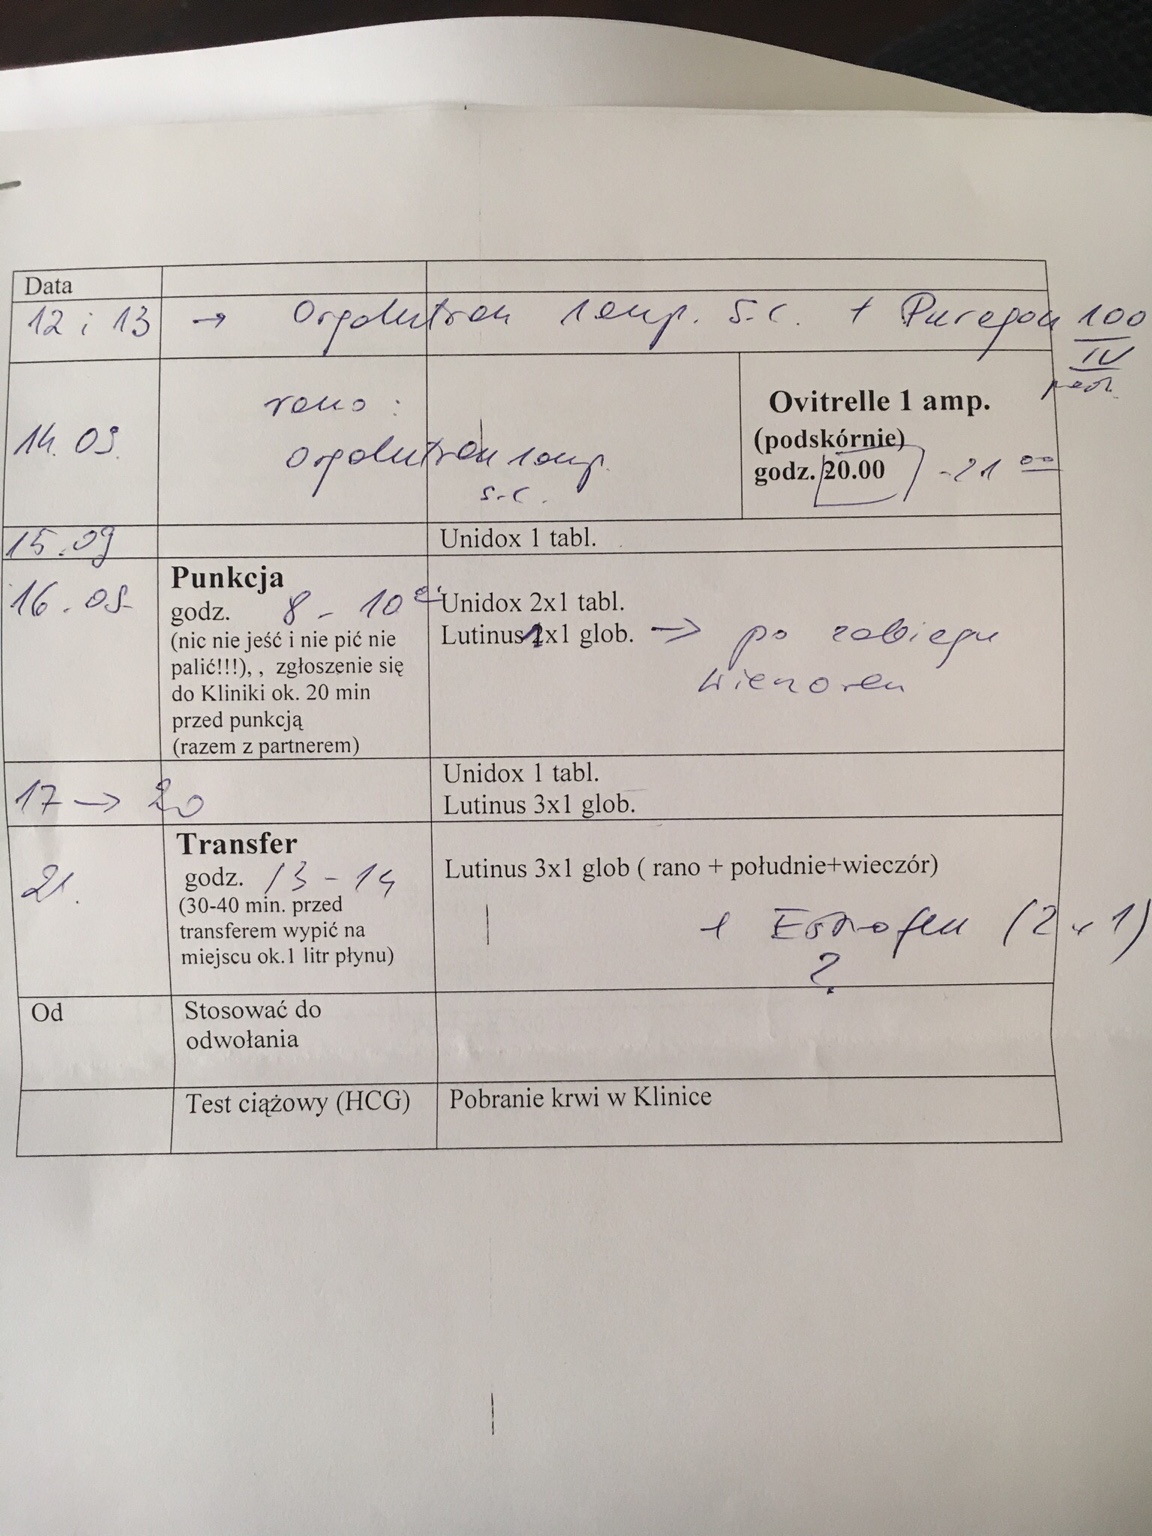 Data
12 i 13 → Orgalutran 1 amp. s.c. + Puregon 100
IV
14.09. rano :
Orgalutran 1 amp.
s.c.
Ovitrelle 1 amp.
(podskórnie)
godz. 20.00 - 21 00
15.09 Unidox 1 tabl.
16.09.
Punkcja
godz. 8 - 10
(nic nie jeść i nie pić nie
palić!!!), , zgłoszenie się
do Kliniki ok. 20 min
przed punkcją
(razem z partnerem)
Unidox 2x1 tabl.
Lutinus 1x1 glob. → po zabiegu
wieczorem
17 → 20
Unidox 1 tabl.
Lutinus 3x1 glob.
21.
Transfer
godz. 13 - 14
(30-40 min. przed
transferem wypić na
miejscu ok.1 litr płynu)
Lutinus 3x1 glob ( rano + południe+wieczór)
+ Estrofem (2 x 1)
?
Od
Stosować do
odwołania
Test ciążowy (HCG)
Pobranie krwi w Klinice